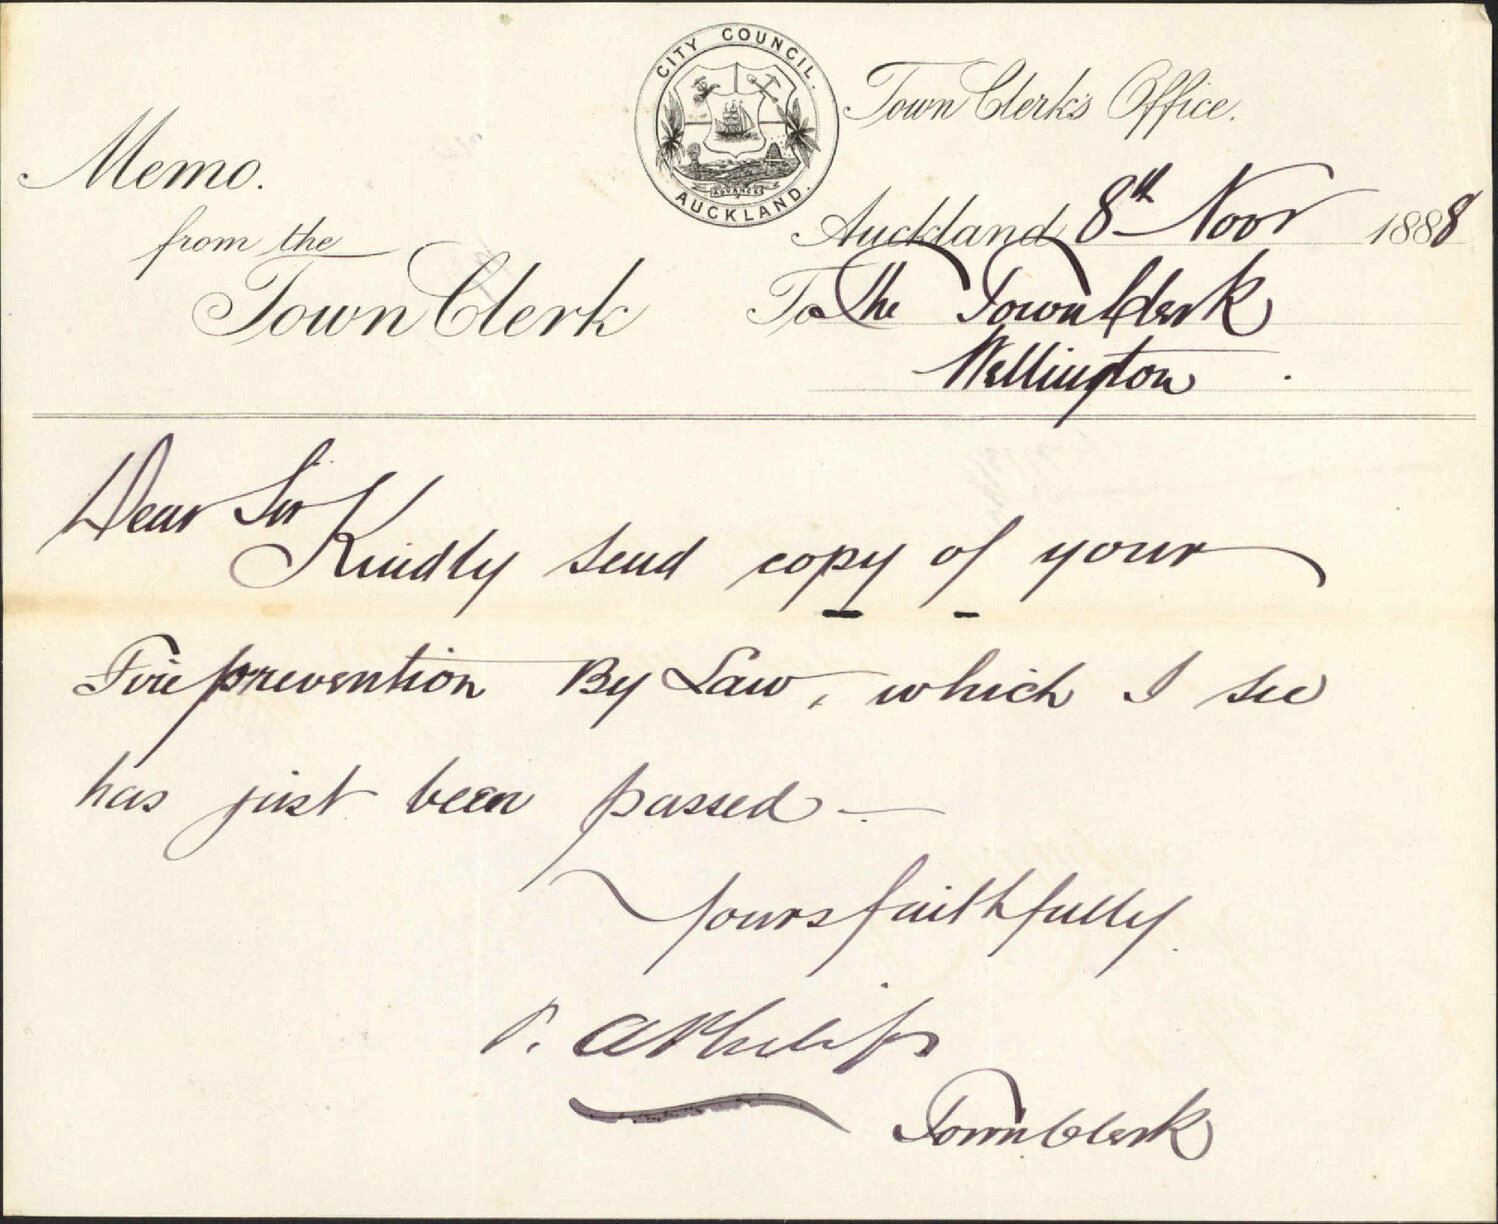 CITY COUNCIL.
ADVANCE
AUCKLAND.
Town Clerk's Office.
Memo.
from the
Town Clerk
Auckland 8th Novr 1888
To The Town Clerk
Wellington.
Dear Sir
Kindly send copy of your
Fire prevention By Law, which I see
has just been passed —
Yours faithfully
P. A Philips
Town Clerk